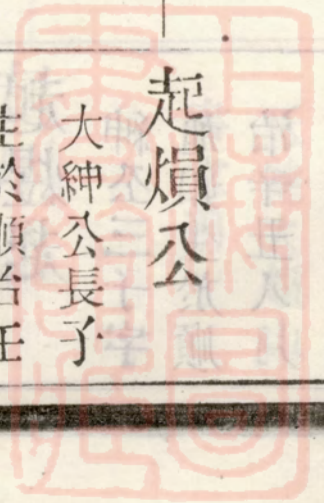 起熉公
大紳公長子
生於順治壬